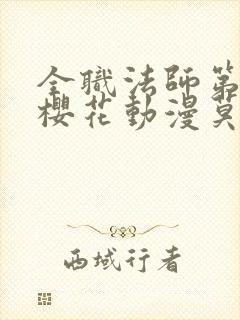 全職法師第
櫻花動漫莫
西域行者